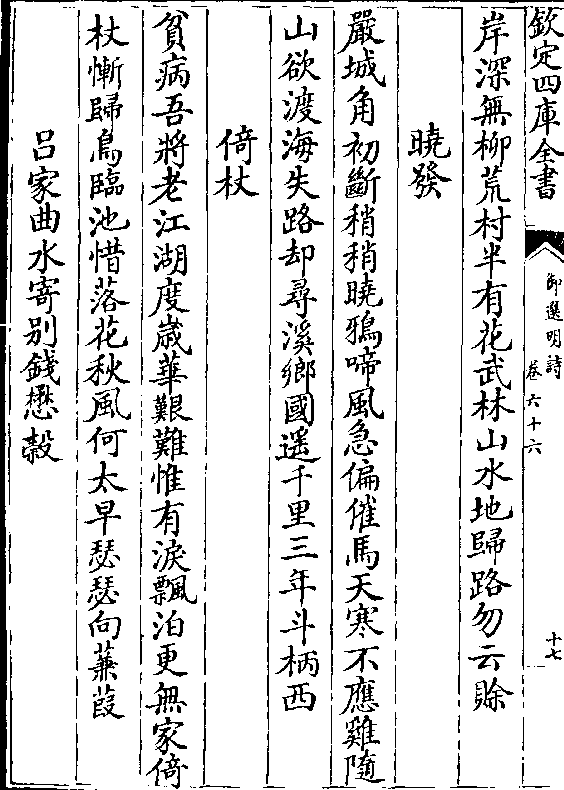 欽定四庫全書
御選明詩
卷六十六
十七
岸深無柳荒村半有花武林山水地歸路勿云賖
曉發
嚴城角初斷稍稍曉鴉啼風急偏催馬天寒不應雞隨
山欲渡海失路却尋溪鄉國遥千里三年斗柄西
倚杖
貧病吾將老江湖度歳華艱難惟有淚飄泊更無家倚
杖慚歸鳥臨池惜落花秋風何太早瑟瑟向蒹葭
呂家曲水寄别錢懋榖